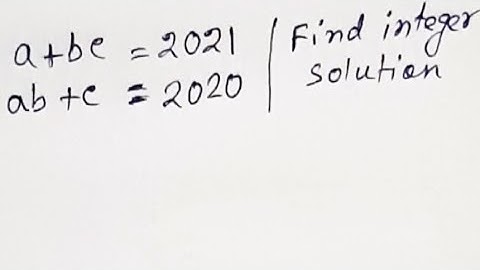 a+bc = 2021
ab+c = 2020
Find integer
solution